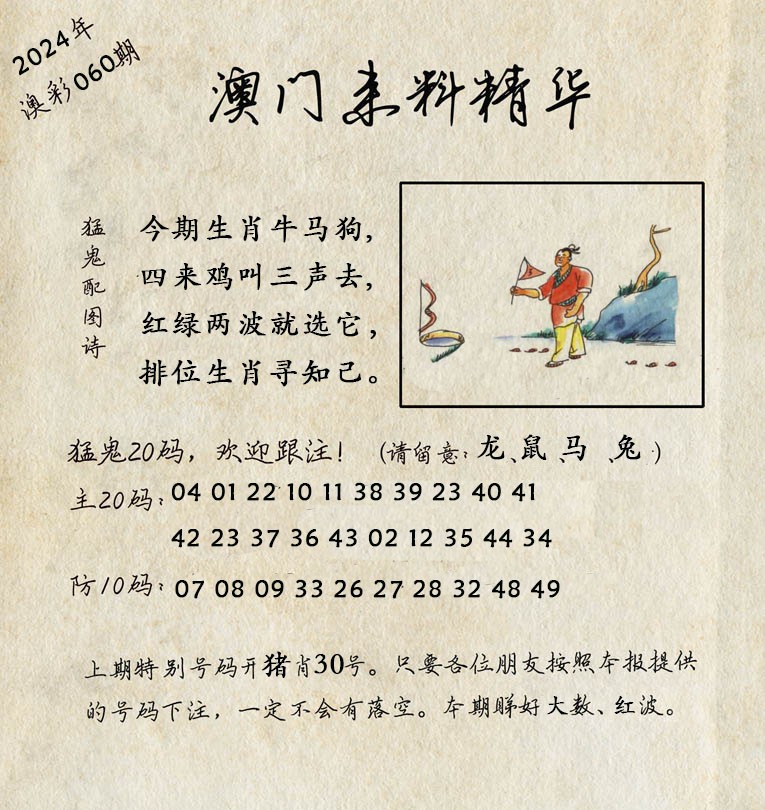 2024年
澳彩060期
澳门来料精华
猛鬼配图诗
今期生肖牛马狗，
四来鸡叫三声去，
红绿两波就选它，
排位生肖寻知己。
猛鬼20码，欢迎跟注！（请留意：龙、鼠、马、兔）
主20码：04 01 22 10 11 38 39 23 40 41
42 23 37 36 43 02 12 35 44 34
防10码：07 08 09 33 26 27 28 32 48 49
上期特别号码开猪肖30号。只要各位朋友按照本报提供
的号码下注，一定不会有落空。本期睇好大数、红波。